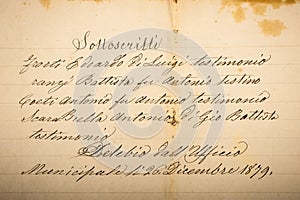 Sottoscritti
Eduardo di Luigi testimonio
Battista fu Antonio testimo
Antonio fu Antonio testimonio
Scarabella Antonio di Gio Battista
testimonio
dall Ufficio
Municipale li 26 Dicembre 1879.